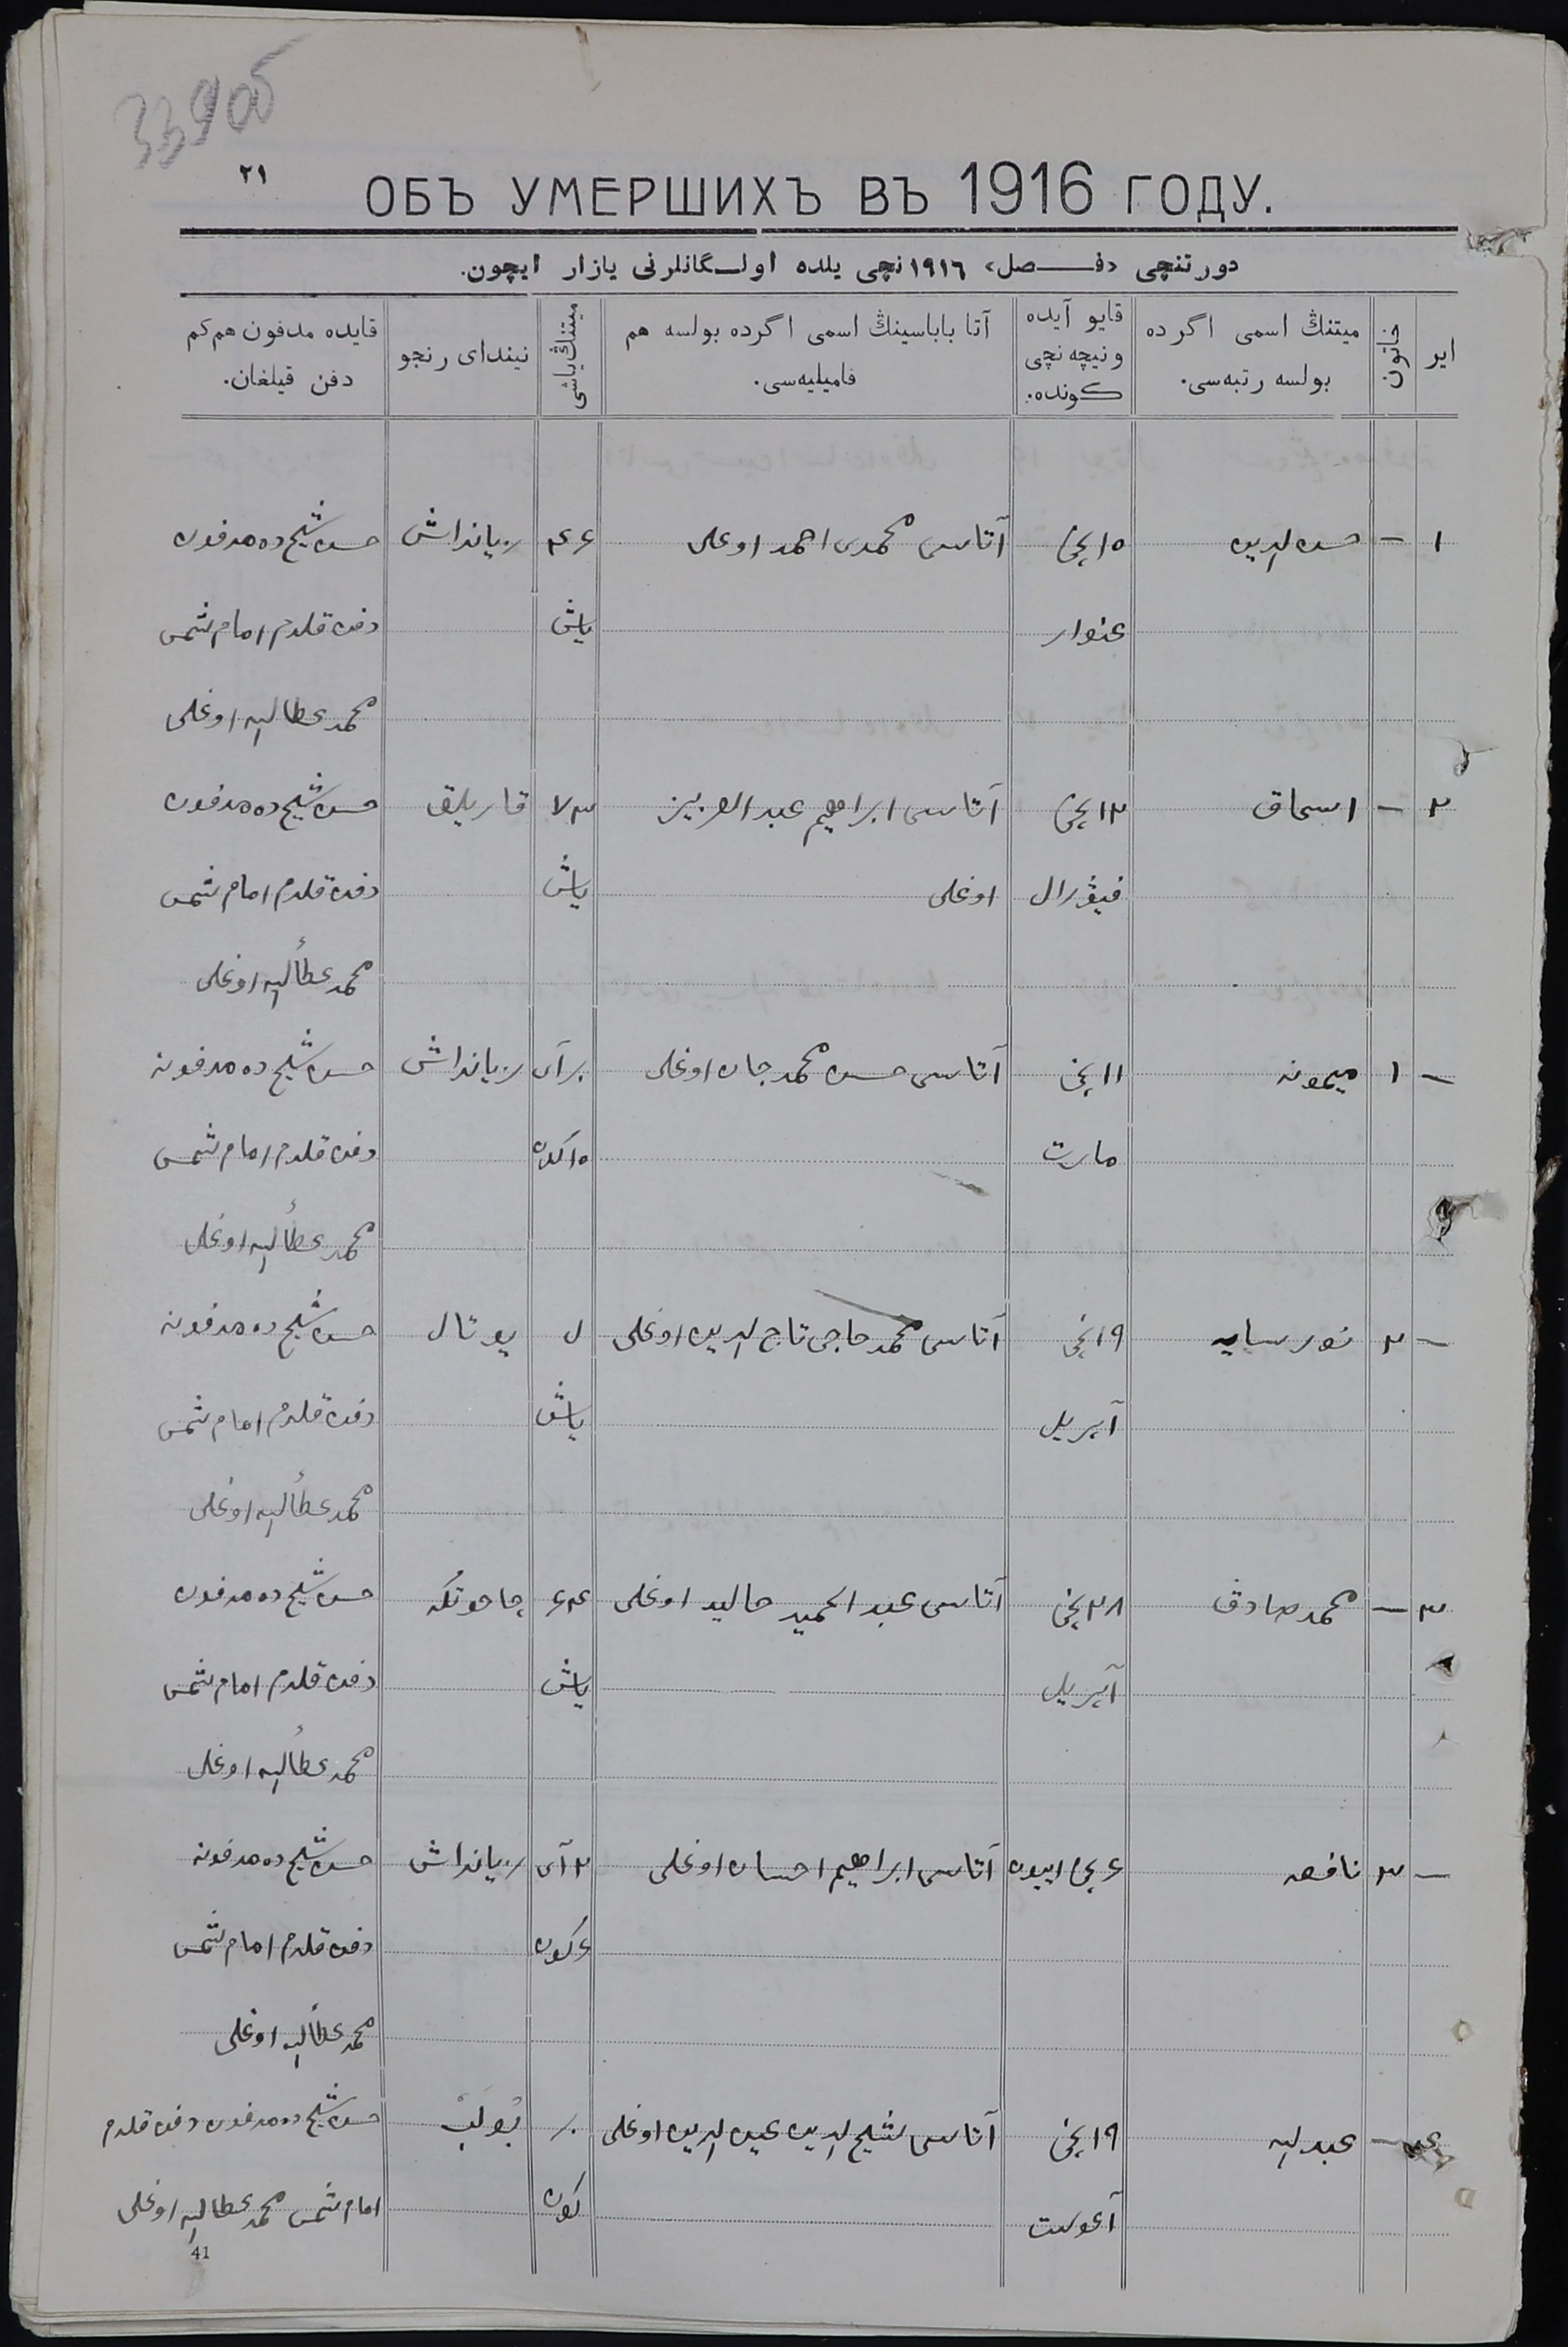 339об
٢١
ОБЪ УМЕРШИХЪ ВЪ 1916 ГОДУ.
دورتنچی «فـــصل» ١٩١٦ نچی یلده اولـگانلرنی یازار ایچون.
ایر
خاتون
میتنڭ اسمی اگرده
بولسه رتبه‌سی.
قایو آیده
و نیچه نچی
کونده.
آتا باباسینڭ اسمی اگرده بولسه هم
فامیلیه‌سی.
میتنڭ یاشی
نیندای رنجو
قایده مدفون هم کم
دفن قیلغان.
١ — حسن الدین ١٥ نچی آتاسی محمدی احمد اوغلی ٤٦ ریانداش حسن شیخ ده مدفون
غنوار یاش دفن قلدم امام شمس
محمد عطا الله اوغلی
٢ — اسحاق ١٢ نچی آتاسی ابراهیم عبد العزیز ٧٣ قاریلق حسن شیخ ده مدفون
فیڤرال اوغلی یاش دفن قلدم امام شمس
محمد عطأ الله اوغلی
— ١ میمونه ١١ نچی آتاسی حسن محمد جان اوغلی بر آی ریانداش حسن شیخ ده مدفونه
مارت ١٥ کون دفن قلدم امام شمس
محمد عطأ الله اوغلی
— ٢ نور سایه ١٩ نچی آتاسی محمد حاجی تاج الدین اوغلی یوتال حسن شیخ ده مدفونه
آپریل یاش دفن قلدم امام شمس
محمد عطأ الله اوغلی
٣ — محمد صادق ٢٨ نچی آتاسی عبد الحمید اوغلی ٦٤ چاحوتکه حسن شیخ ده مدفون
آپریل یاش دفن قلدم امام شمس
محمد عطأ الله اوغلی
— ٣ نافعه ٦ نچی اییون آتاسی ابراهیم احسان اوغلی ٢ آی ریانداش حسن شیخ ده مدفونه
٦ کون دفن قلدم امام شمس
محمد عطأ الله اوغلی
٤ — عبد الله ١٩ نچی آتاسی شیخ الدین عین الدین اوغلی بر حسن شیخ ده مدفون دفن قلدم
آغوست کون امام شمس محمد عطا الله اوغلی
41